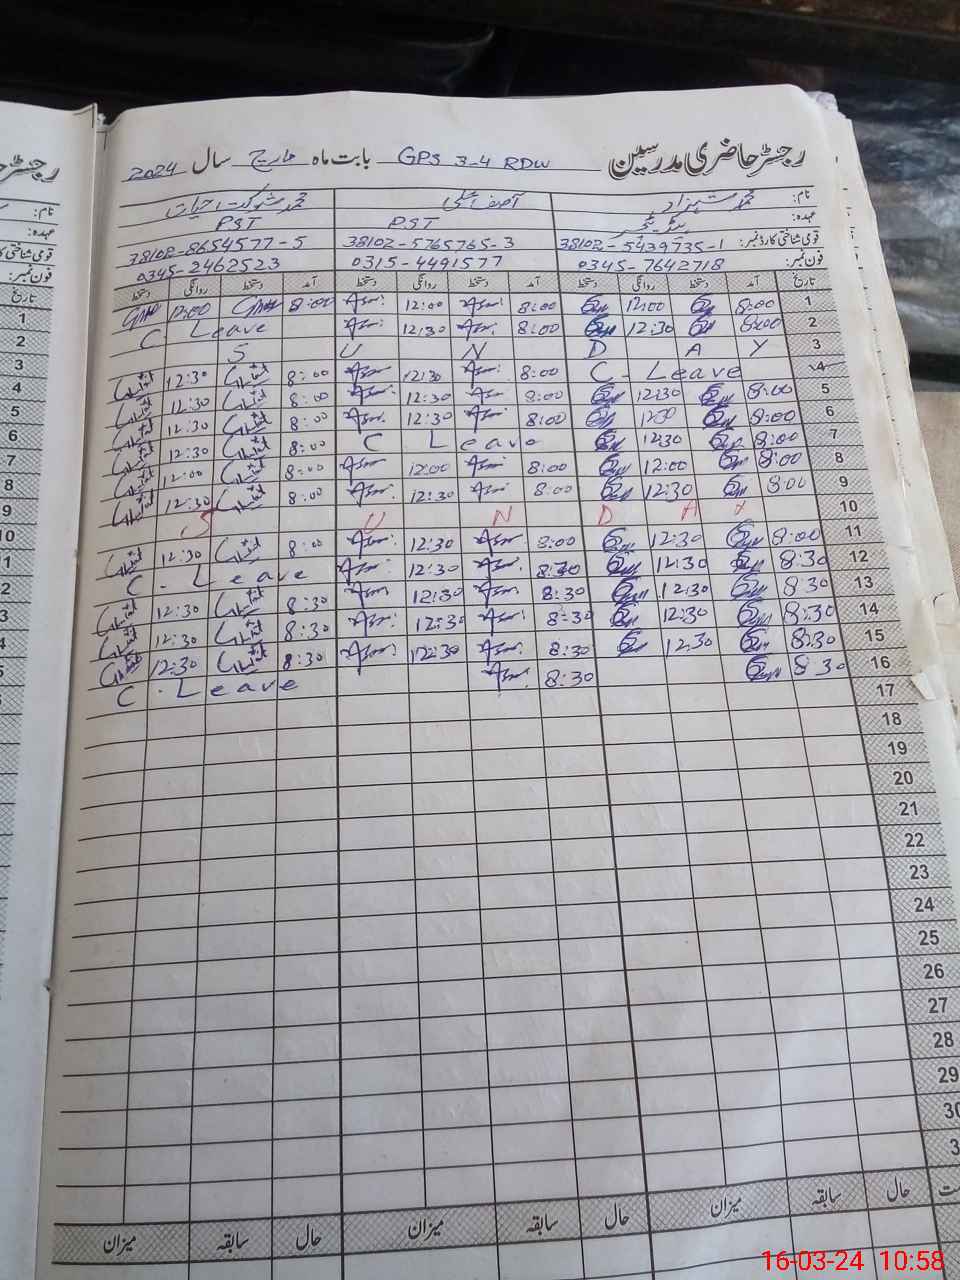 رجسٹر حاضری مدرسین GPS 3-4 RDW بابت ماہ مارچ سال 2024
نام: محمد شہزاد آصف علی محمد شوکت حیات
عہدہ: PST PST
قومی شناختی کارڈ نمبر: 38102-5439735-1 38102-5765765-3 38102-8654577-5
فون نمبر: 0345-7642718 0315-4491577 0345-2462523
تاریخ آمد دستخط روانگی دستخط آمد دستخط روانگی دستخط آمد دستخط روانگی دستخط
1 8:00 12:00 8:00 12:00 8:00 12:00
2 8:00 12:30 8:00 12:30 C. Leave
3 S U N D A Y
4 C. Leave 8:00 12:30 8:00 12:30
5 8:00 12:30 8:00 12:30 8:00 12:30
6 8:00 12:30 8:00 12:30 8:00 12:30
7 8:00 12:30 C Leave 8:00 12:30
8 8:00 12:00 8:00 12:00 8:00 12:00
9 8:00 12:30 8:00 12:30 8:00 12:30
10 S U N D A Y
11 8:00 12:30 8:00 12:30 8:00 12:30
12 8:30 12:30 8:30 12:30 C. Leave
13 8:30 12:30 8:30 12:30 8:30 12:30
14 8:30 12:30 8:30 12:30 8:30 12:30
15 8:30 12:30 8:30 12:30 8:30 12:30
16 8:30 8:30 C. Leave
17
18
19
20
21
22
23
24
25
26
27
28
29
حال سابقہ میزان حال سابقہ میزان حال سابقہ میزان
16-03-24 10:58